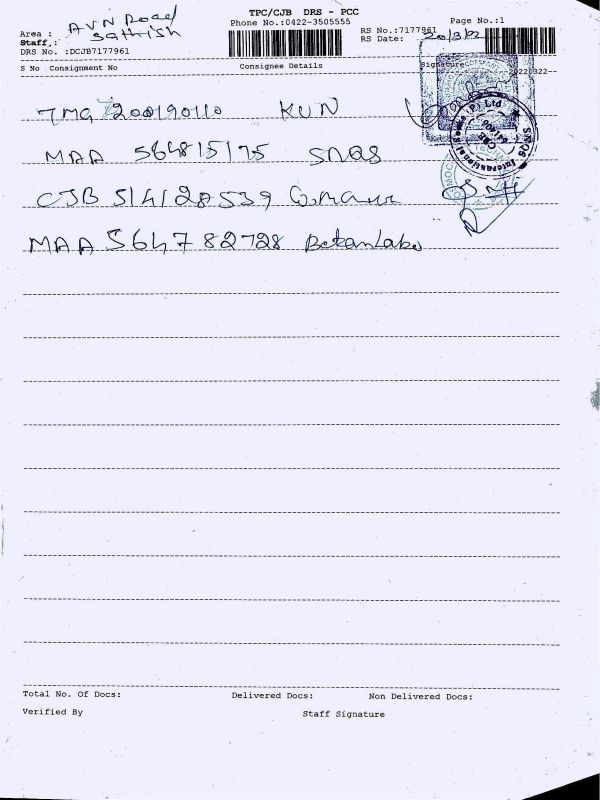 TPC/CJB DRS - PCC
Phone No.:0422-3505555
Page No.:1
Area : AVN Road
Staff : Sathish
RS No.:7177961
RS Date: 20/3/22
DRS No. :DCJB7177961
S No Consignment No Consignee Details Signature
20220322--
TMG 200190110 KUN
MAA 564815175 SNQS
CJB 514128539
MAA 564782728
SNQS International Socks (P) Ltd
Total No. Of Docs: Delivered Docs: Non Delivered Docs:
Verified By Staff Signature